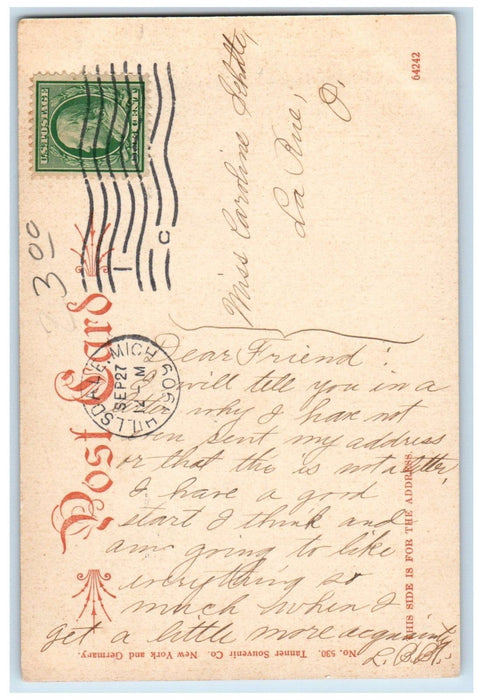 64242
U.S. POSTAGE
CENT
3 00
Post Card
HILLSDALE, MICH
SEP 27
12 - M
1909
1 C
Miss Caroline
La Rue,
O.
Dear Friend:
I will tell you in a
why I have not
sent my address
or that this is not a letter,
I have a good
start I think and
am going to like
everything so
much when I
get a little more acquainted
L. B. H.
THIS SIDE IS FOR THE ADDRESS.
No. 530. Tanner Souvenir Co. New York and Germany.